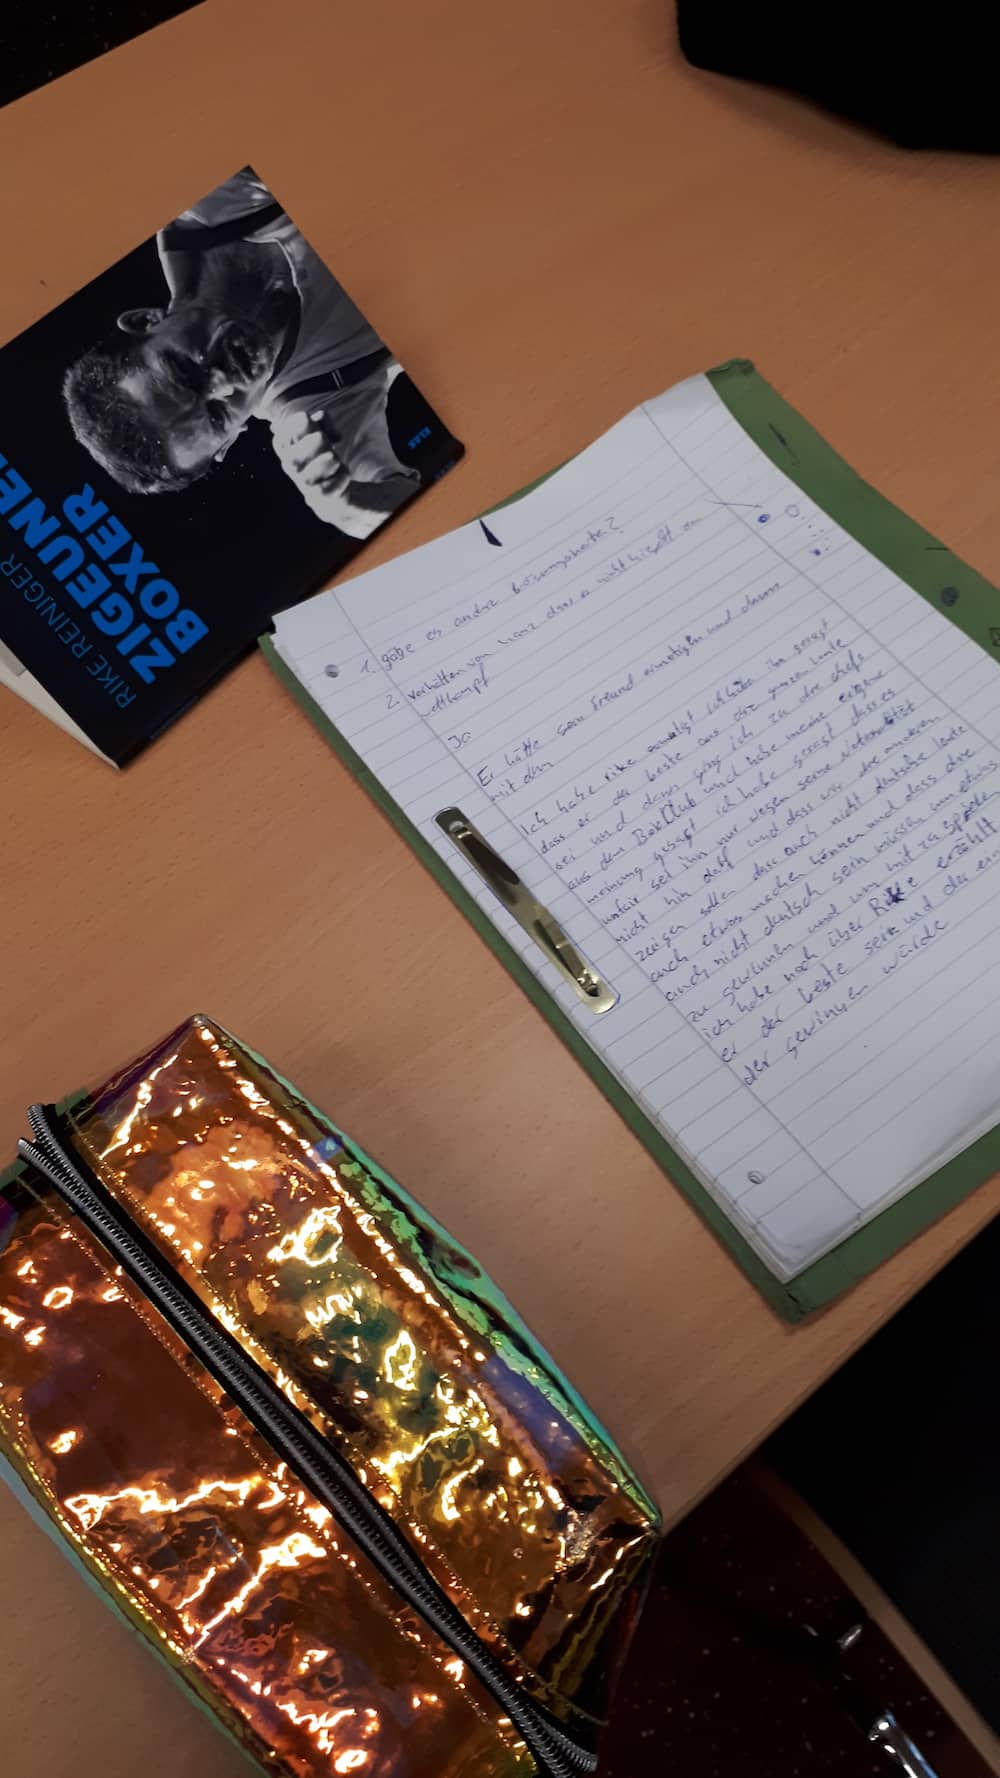 RIKE REINIGER
ZIGEUNE
BOXER
KLAK
1. gäbe es andre lösungsworte?
2. verhälten von hanz dass er nicht hingeht am
wettkampf
Ja
Er hätte sein Freund ermutigen und dann
mit dem
Ich habe rike ermutigt ich habe ihn gesagt
dass er der beste aus der ganzen Leute
sei und dann ging ich zu der chefs
aus dem BoxClub und habe meine eigene
meinung gesagt ich habe gesagt dass es
unfair sei ihn nur wegen seine Nationalität
nicht hin darf und dass wir die anderen
zeigen sollen dass auch nicht deutsche leute
auch etwas machen können und dass die
auch nicht deutsch sein müssen um etwas
zu gewinnen und um mit zu spielen
ich habe noch über Rike erzählt
er der beste sein und der ein
der gewinnen würde